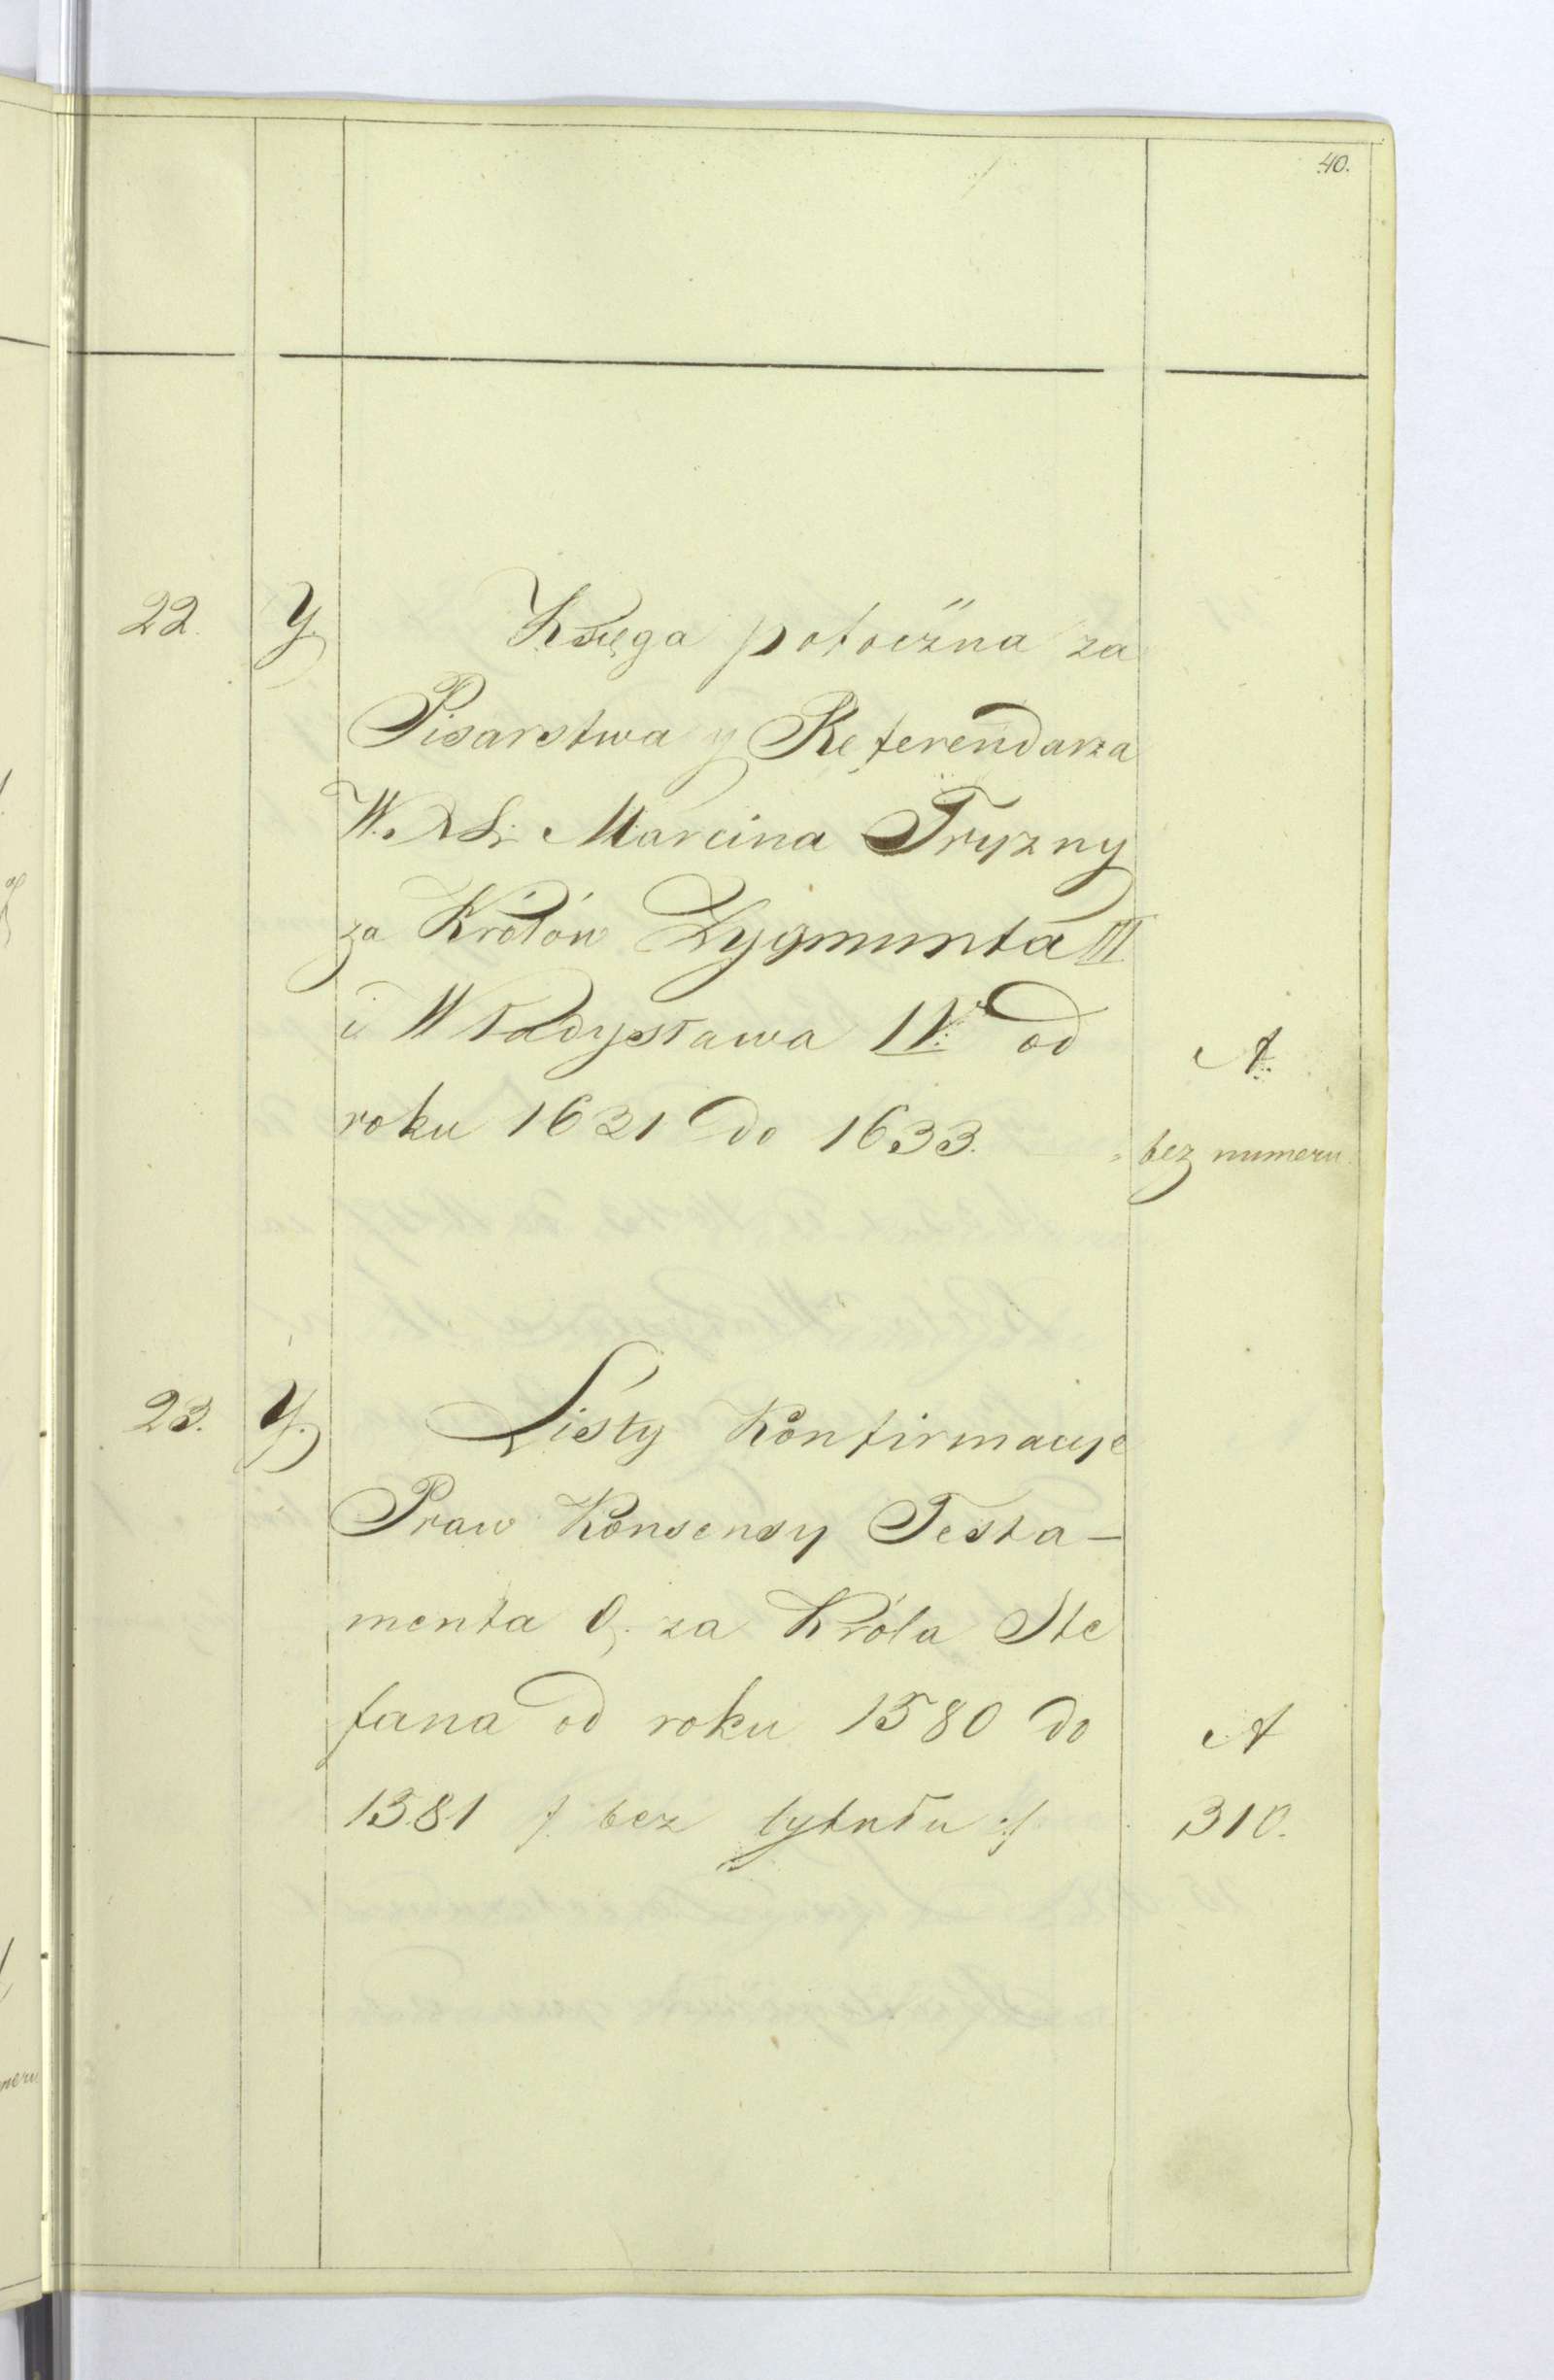 40.
22. Y. Księga potoczna za
Pisarstwa y Referendarza
W. X L: Marcina Tryzny
za Królów Zygmunta III.
i Władysława IV. od
roku 1621 do 1633.
A.
bez numeru.
23. Y. Listy Konfirmacye
Praw Konsensy Testa-
menta &. za Króla Ste
fana od roku 1580 do
1581 /: bez tytułu :/
A
310.